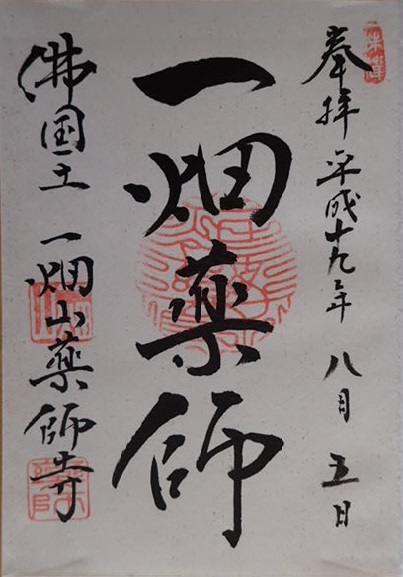 奉拝 平成十九年 八月 五日
一畑薬師
佛国土 一畑山薬師寺